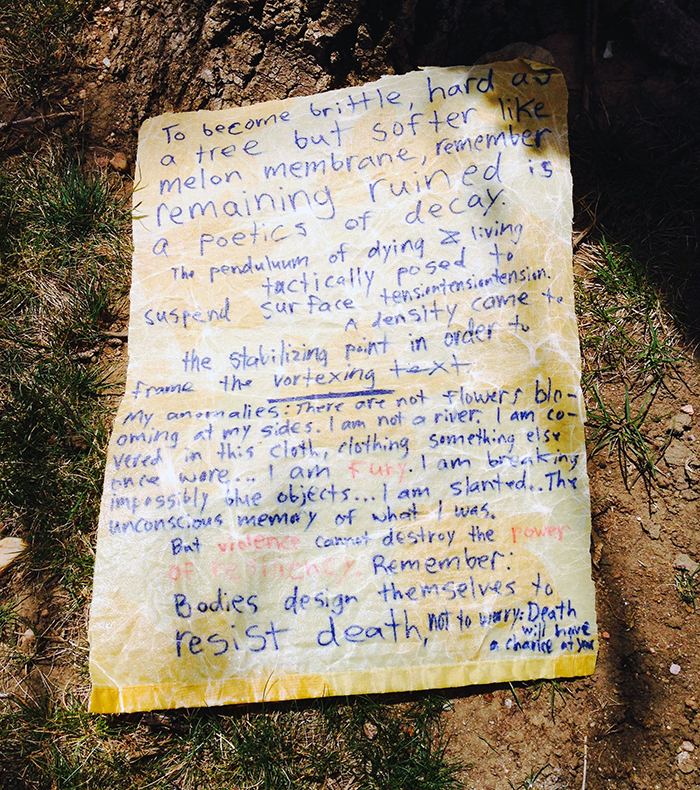 To become brittle, hard as
a tree but softer like
melon membrane, remember
remaining ruined is
a poetics of decay.
The penduluum of dying & living
tactically posed to
suspend surface tensiontensiontension.
A density came to
the stabilizing point in order to
frame the vortexing text.
My anomalies: There are not flowers blo-
oming at my sides. I am not a river. I am co-
vered in this cloth, clothing something else
once wore... I am fury. I am breaking
impossibly blue objects... I am slanted.. The
unconscious memory of what I was.
But violence cannot destroy the power
of resiliency. Remember:
Bodies design themselves to
resist death, not to worry: Death
will have
a chance at you